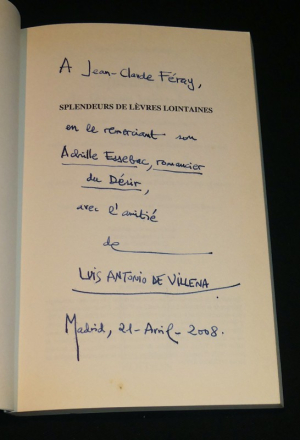 A Jean-Claude Féray,
SPLENDEURS DE LÈVRES LOINTAINES
en le remerciant son
Achille Essebac, romancier
du Désir,
avec l'amitié
de
LUIS ANTONIO DE VILLENA
Madrid, 21-Avril-2008.